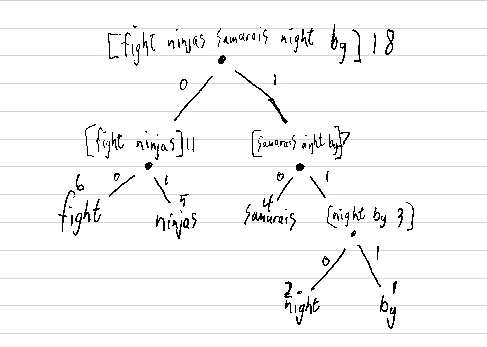 [fight ninjas samurais night by] 18
0 1
[fight ninjas] 11 [samurais night by] 7
0 1 0 1
6 fight 5 ninjas 4 samurais [night by 3]
0 1
2 night 1 by